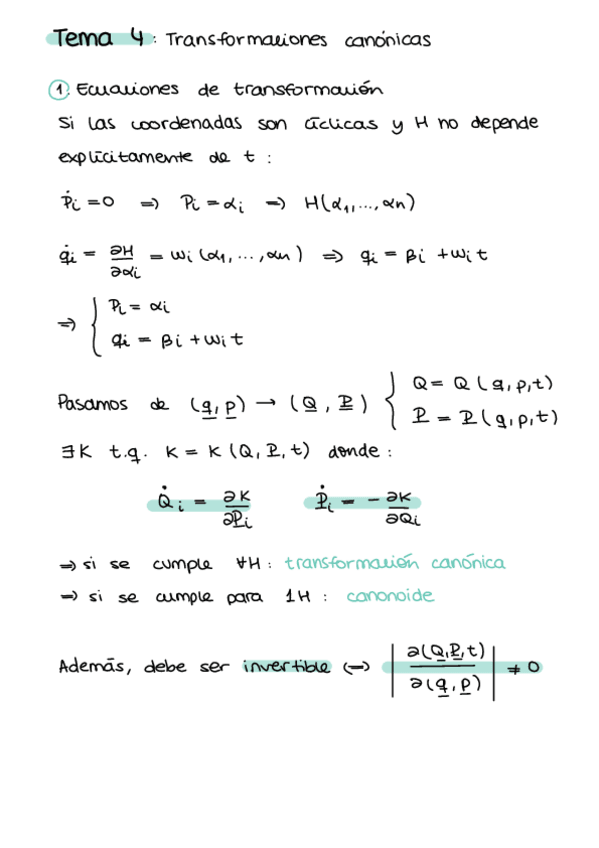 Tema 4: Transformaciones canónicas
1. Ecuaciones de transformación
Si las coordenadas son cíclicas y H no depende
explícitamente de t :
ṗi = 0 => Pi = αi => H(α1, ..., αn)
q̇i = ∂H/∂αi = wi (α1, ..., αn) => qi = βi + wi t
=> { Pi = αi
qi = βi + wi t
Pasamos de (q, p) → (Q, P) { Q = Q (q, p, t)
P = P (q, p, t)
∃ K t.q. K = K (Q, P, t) donde :
Q̇i = ∂K/∂Pi Ṗi = - ∂K/∂Qi
=> si se cumple ∀H : transformación canónica
=> si se cumple para 1H : canonoide
Además, debe ser invertible <-> | ∂(Q, P, t)/∂(q, p) | ≠ 0